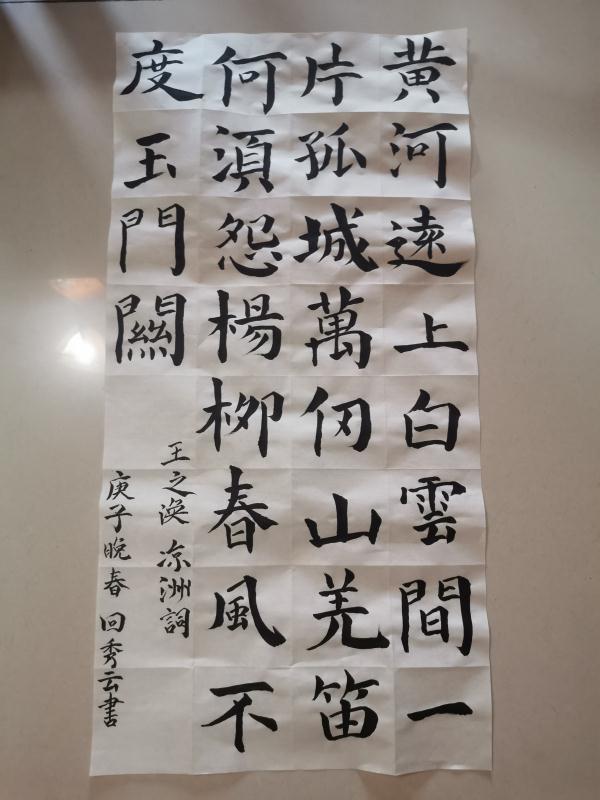 黄河遠上白雲間一
片孤城萬仞山羌笛
何須怨楊柳春風不
度玉門關
王之渙涼洲詞
庚子晚春回秀云書